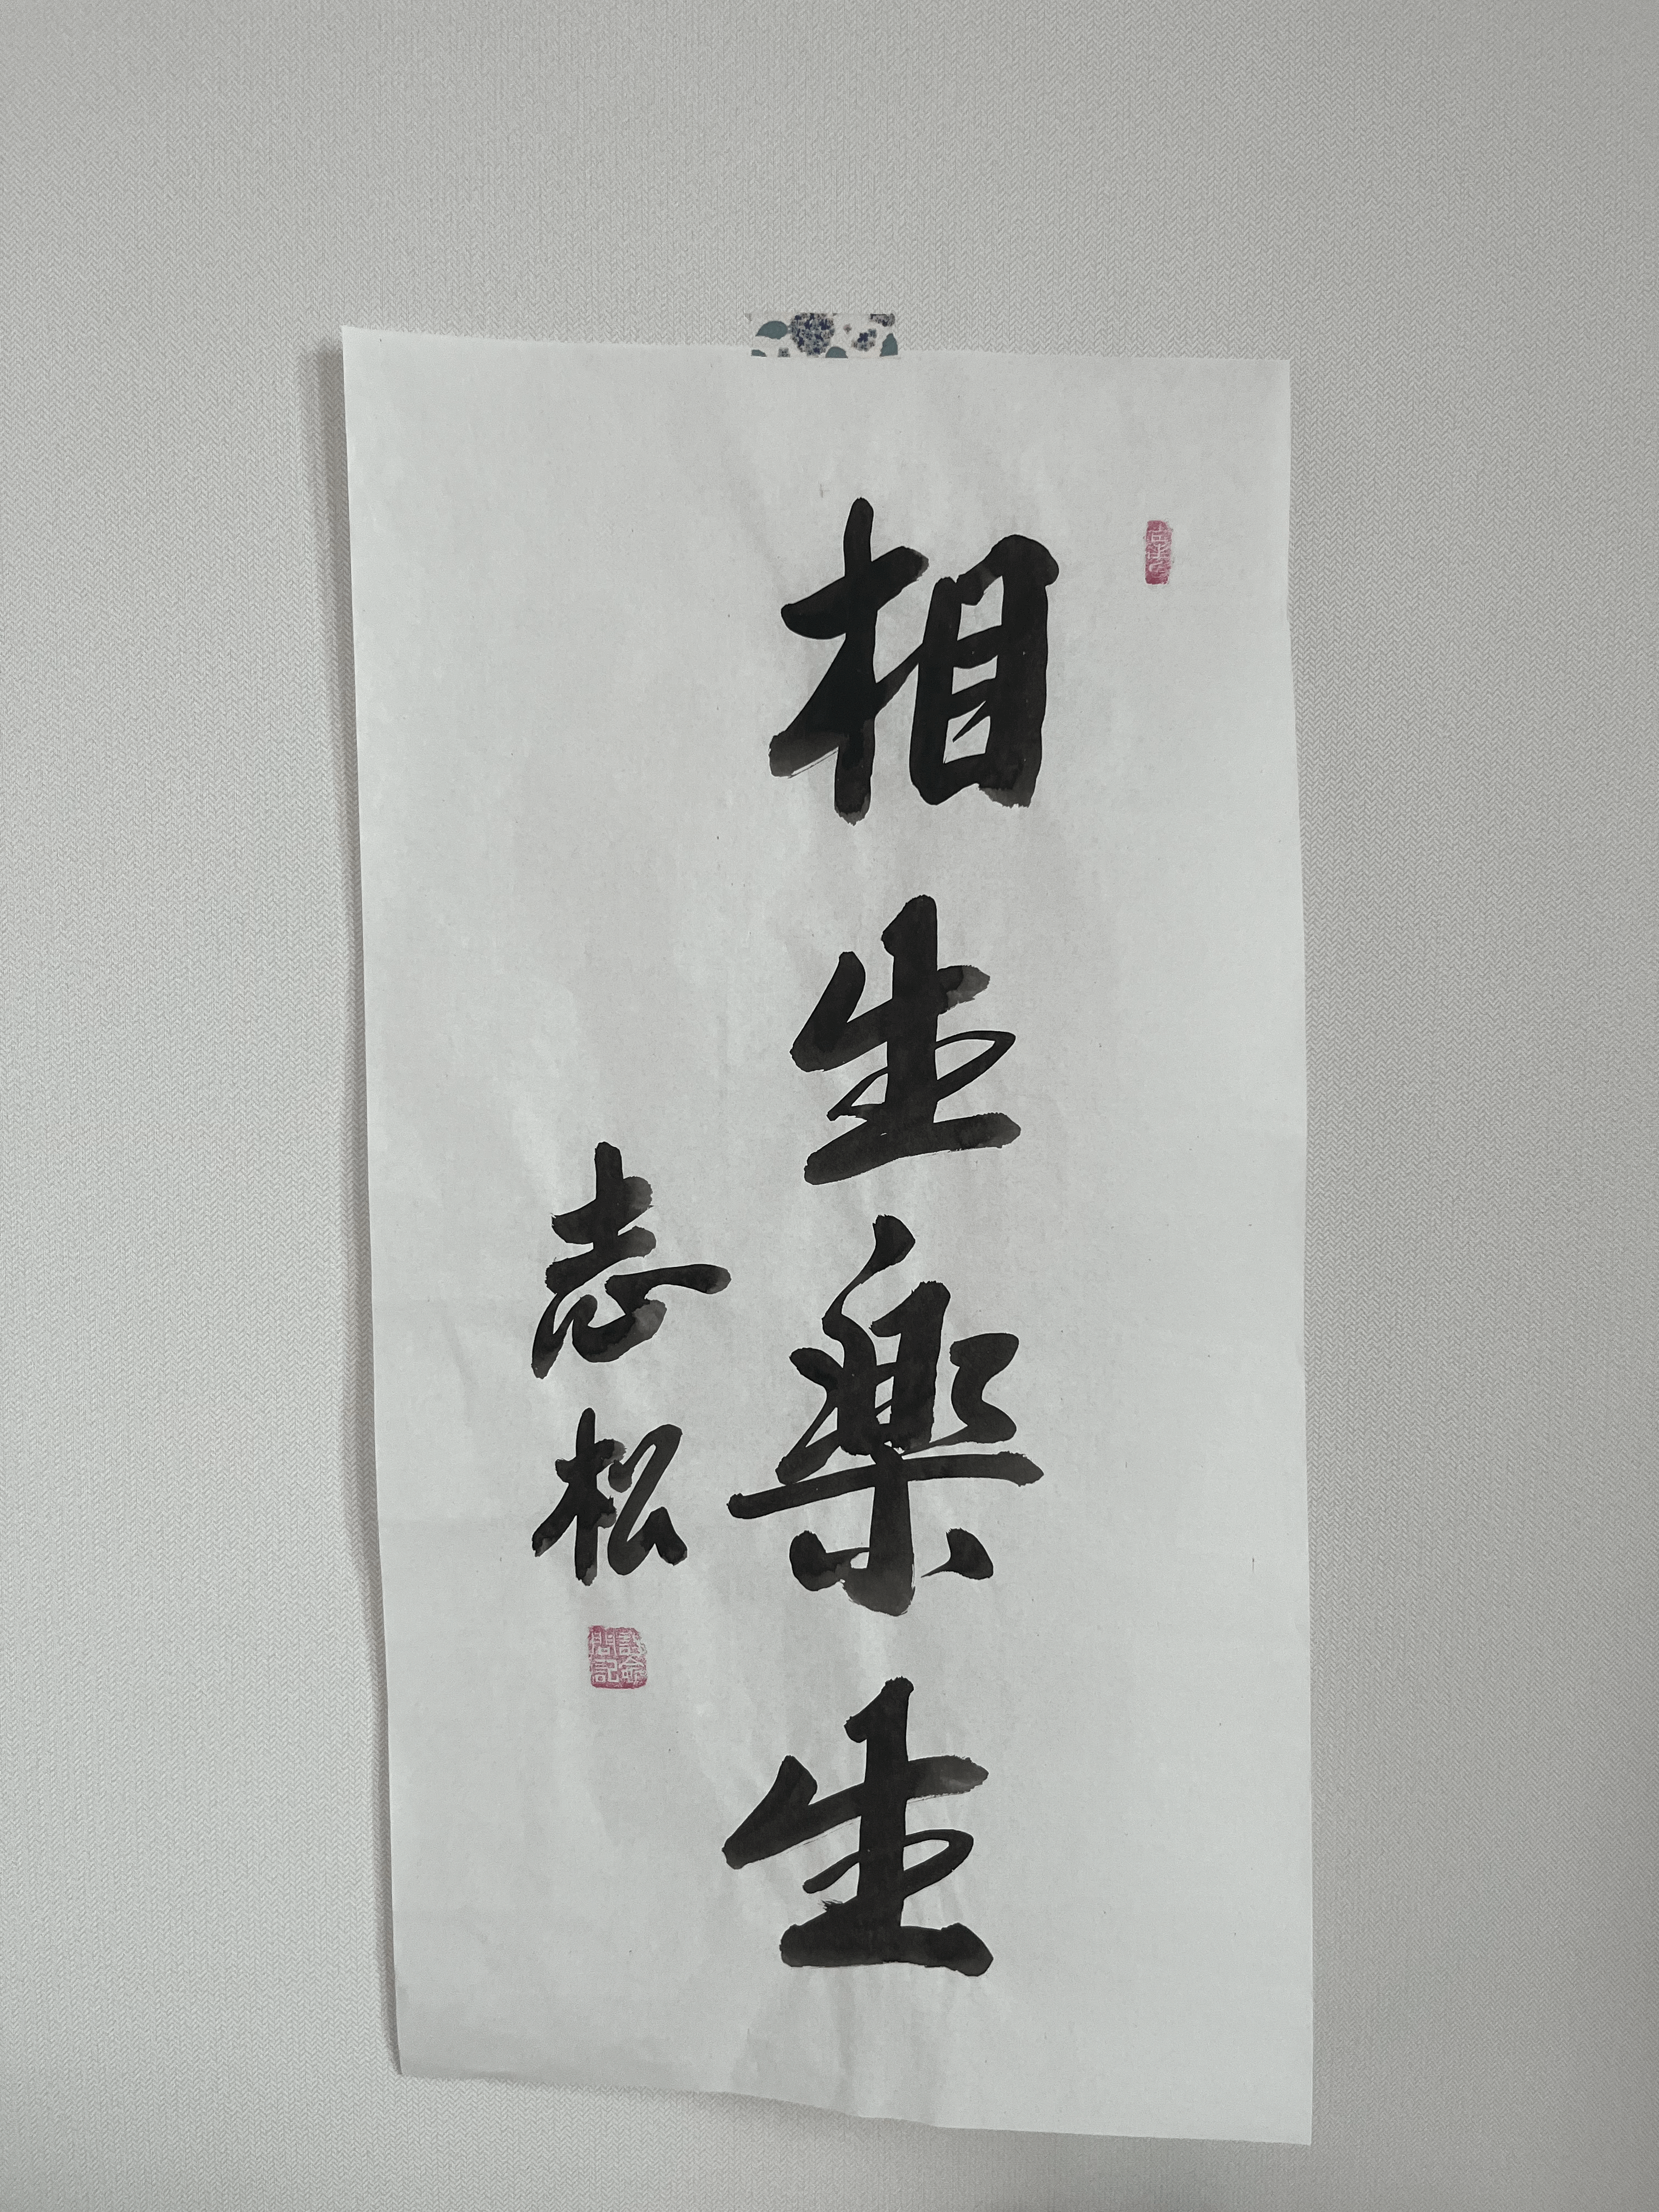 相生楽生
志松